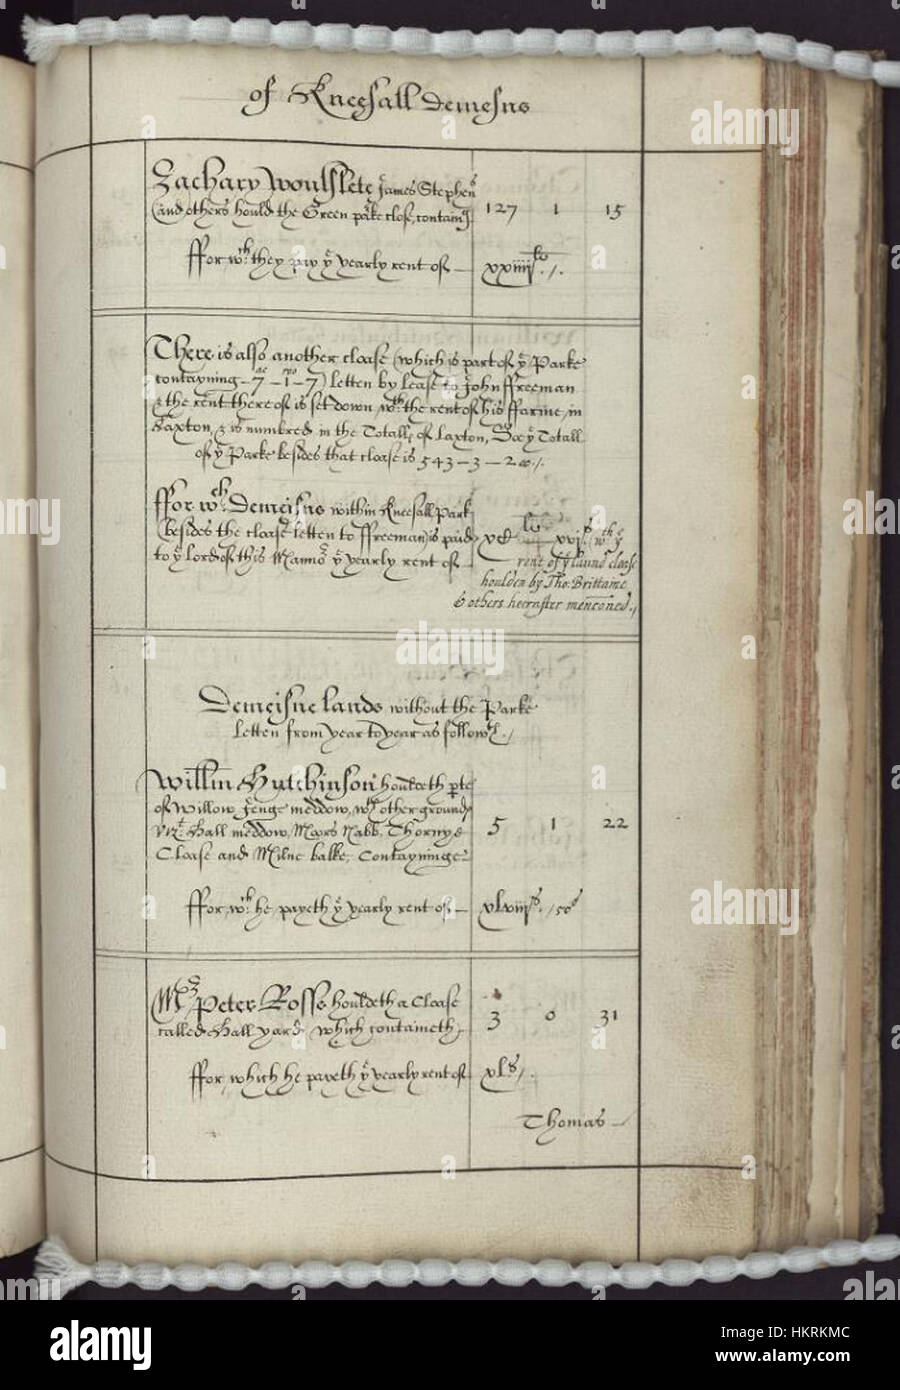 of Kneesall Demesns
Zachary Woulflete James Stephens
(and others hould the Green parke close, containg 127 1 15
ffor wch they pay ye yearly rent of — xxiiiili ./.
There is also another Cloase (which is part of ye Parke
contayning – 7 ac – 1 ro – 7) letten by lease to John ffreeman
& the rent there of is set down wth the rent of his ffarme, in
Laxton, & is numbred in the Totall of Laxton, Soe ye Totall
of ye Parke besides that cloase is 543 – 3 –
ffor wch Demeisns within Kneesall Park
(besides the cloase letten to ffreeman) is paid
to ye lord of this Mannor ye yearly rent of — li xvjs (wth ye
rent of ye laund close
houlden by Tho: Brittaine
& others hereafter mencõned./
Demeisne lands without the Parke
Letten from year to year as followth./
Willm Hutchinson houldeth pte
of Willow Jenge meddow, wth other grounds
vizt Hall meddow, Mars Nabb, Thornye
Cloase and Milne balke, Contayninge 5 1 22
ffor wch he payeth ye yearly rent of — xlviiis
Mr Peter Rosse houldeth a Cloase
called Hall yard which containeth, 3 0 31
ffor which he payeth ye yearly rent of xls/.
Thomas —
alamy
alamy stock photo
HKRKMC
www.alamy.com